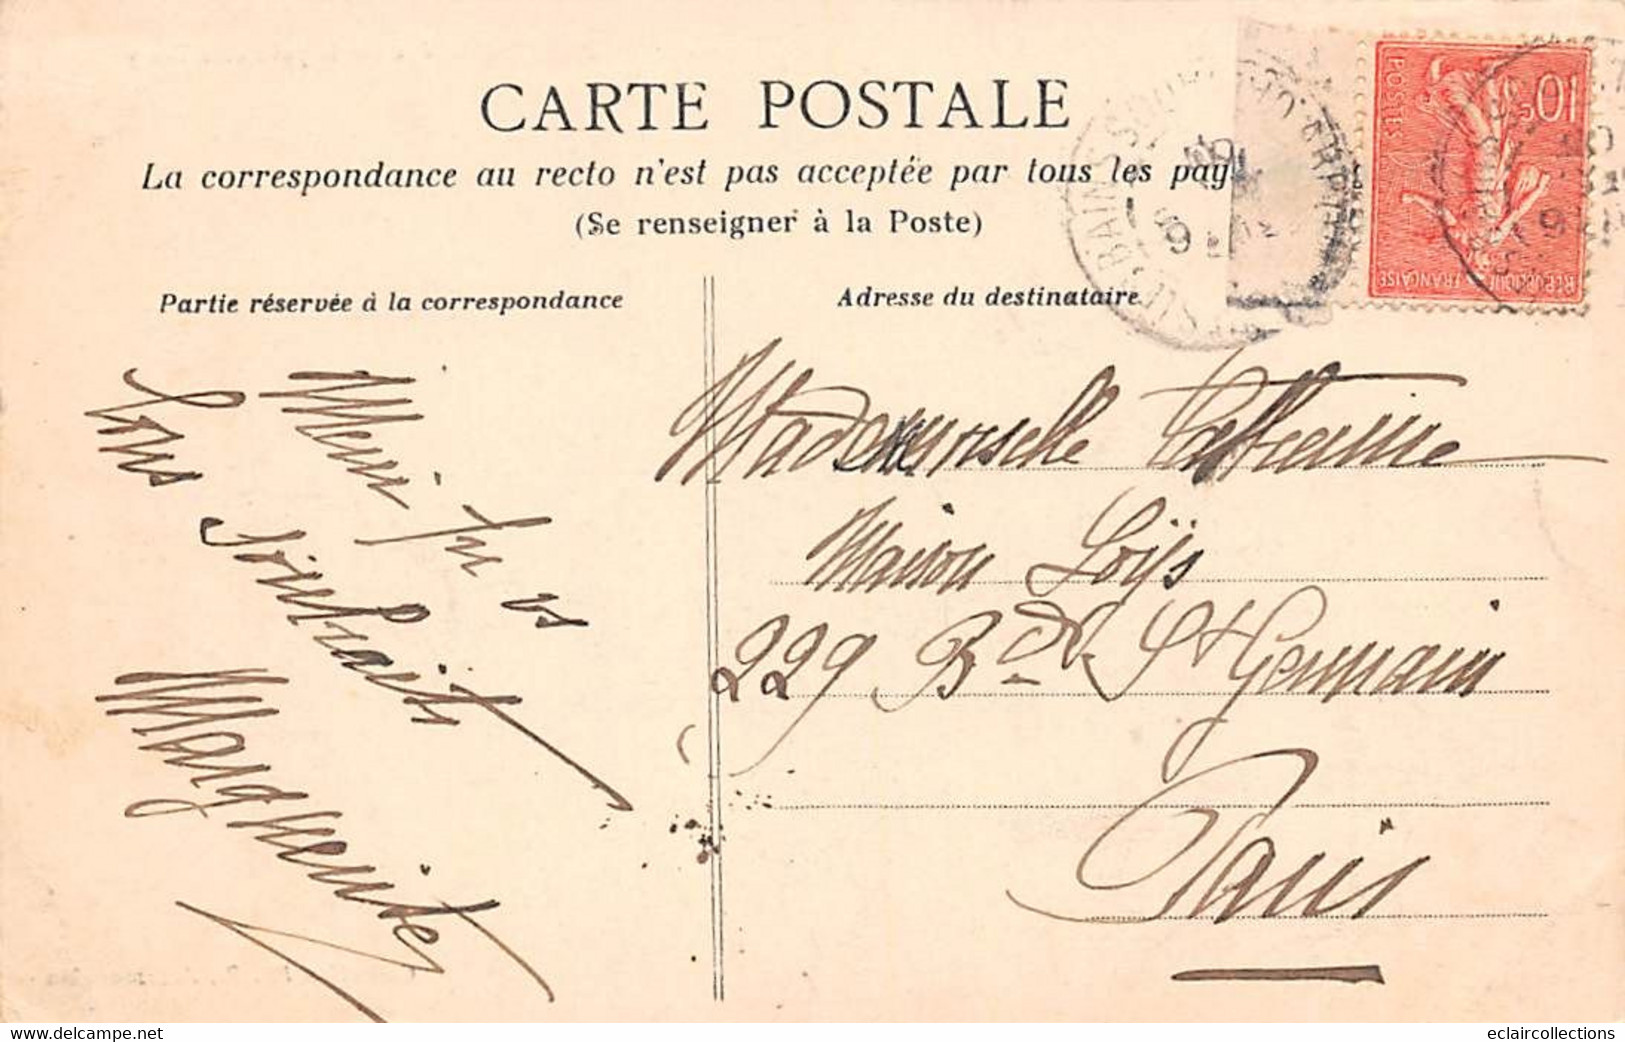 CARTE POSTALE
La correspondance au recto n'est pas acceptée par tous les pay
(Se renseigner à la Poste)
Partie réservée à la correspondance
Adresse du destinataire
POSTES
10c
REPUBLIQUE FRANÇAISE
Merci pr vs
bons souhaits
Marguerite
Mademoiselle Catherine
Maison Loÿs
229 Bd St Germain
Paris
eclaircollections